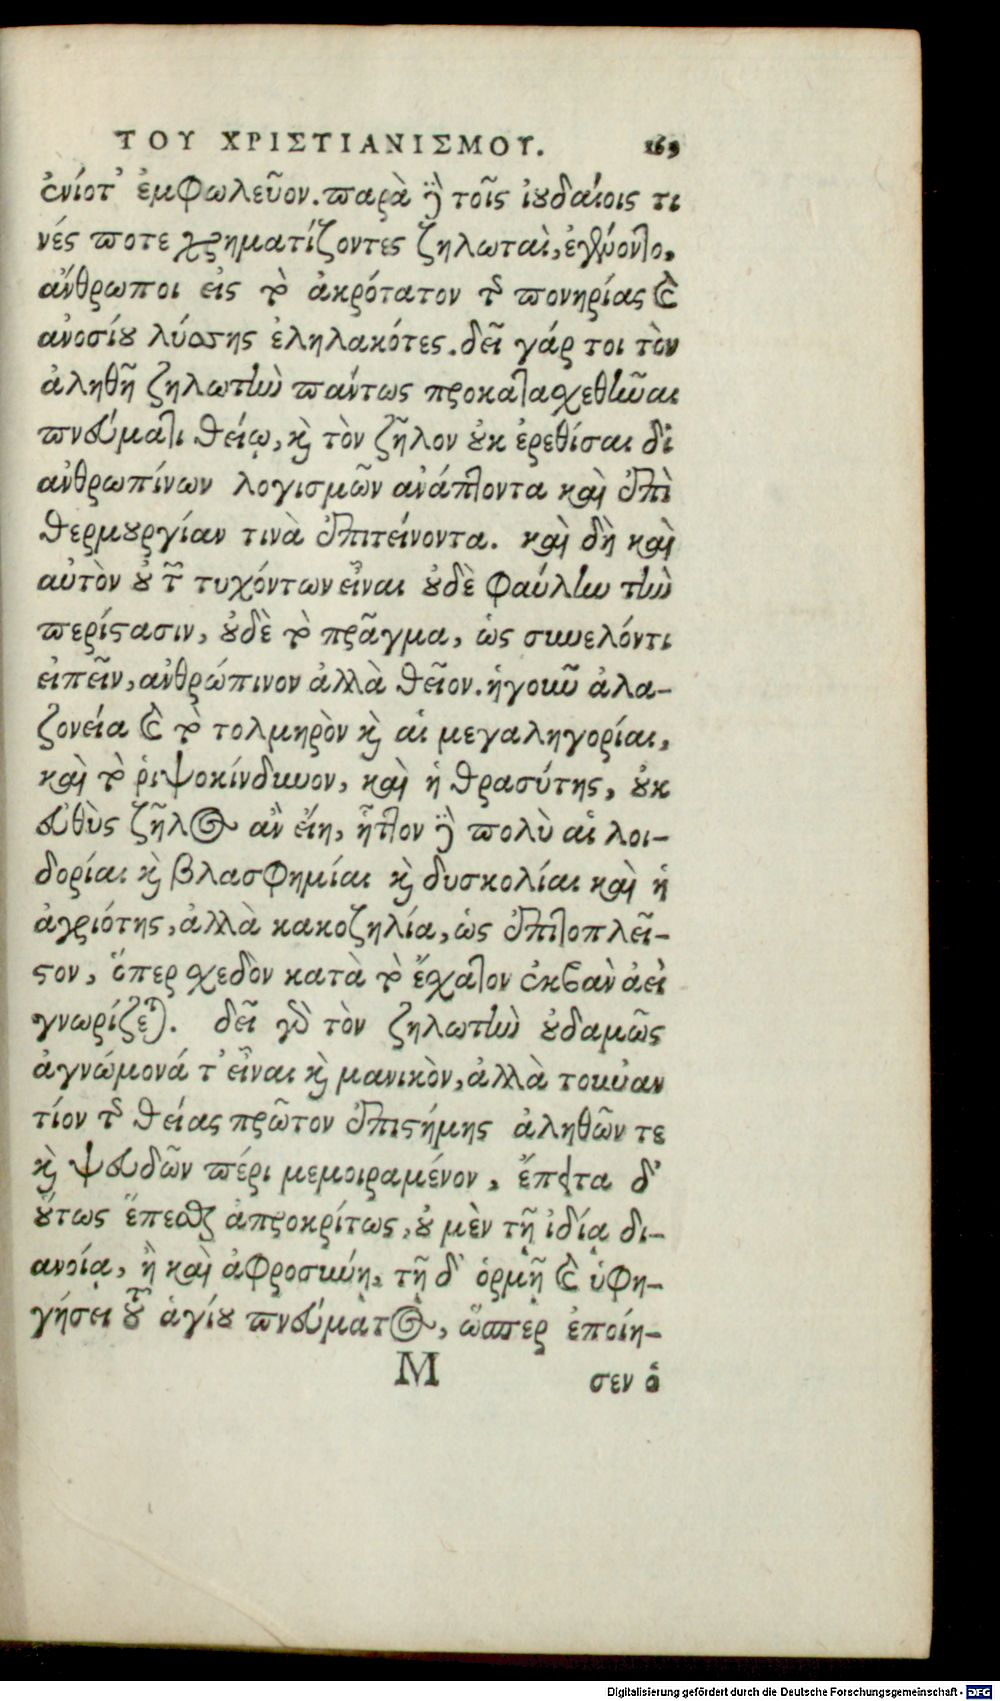 ΤΟΥ ΧΡΙΣΤΙΑΝΙΣΜΟΥ. 169
ἐνίοτ᾽ ἐμφωλεῦον. παρὰ δὲ τοῖς ἰουδαίοις τι
νές ποτε χρηματίζοντες ζηλωταὶ, ἐγένοντο,
ἄνθρωποι εἰς τὸ ἀκρότατον τῆς πονηρίας καὶ
ἀνοσίου λύσσης ἐληλακότες. δεῖ γάρ τοι τὸν
ἀληθῆ ζηλωτὴν πάντως προκατασχεθῆναι
πνεύματι θείῳ, καὶ τὸν ζῆλον οὐκ ἐρεθίσαι δι᾽
ἀνθρωπίνων λογισμῶν ἀνάπτοντα καὶ ἐπὶ
θερμουργίαν τινὰ ἐπιτείνοντα. καὶ δὴ καὶ
αὐτὸν οὐ τῶν τυχόντων εἶναι οὐδὲ φαύλην τὴν
περίστασιν, οὐδὲ τὸ πρᾶγμα, ὡς συνελόντι
εἰπεῖν, ἀνθρώπινον ἀλλὰ θεῖον. ἡ γοῦν ἀλα-
ζονεία καὶ τὸ τολμηρὸν καὶ αἱ μεγαληγορίαι,
καὶ τὸ ῥιψοκίνδυνον, καὶ ἡ θρασύτης, οὐκ
εὐθὺς ζῆλος ἂν εἴη, ἧττον δὲ πολὺ αἱ λοι-
δορίαι καὶ βλασφημίαι καὶ δυσκολίαι καὶ ἡ
ἀγριότης, ἀλλὰ κακοζηλία, ὡς ἐπιτοπλεῖ-
στον, ὅπερ σχεδὸν κατὰ τὸ ἔσχατον ἐκβὰν ἀεὶ
γνωρίζεται. δεῖ γὰρ τὸν ζηλωτὴν οὐδαμῶς
ἀγνώμονά τ᾽ εἶναι καὶ μανικὸν, ἀλλὰ τοὐναν
τίον τῆς θείας πρῶτον ἐπιστήμης ἀληθῶν τε
καὶ ψευδῶν πέρι μεμοιραμένον, ἔπειτα δ᾽
οὕτως ἕπεσθαι ἀπροκρίτως, οὐ μὲν τῇ ἰδίᾳ δι-
ανοίᾳ, ἢ καὶ ἀφροσύνῃ, τῇ δ᾽ ὁρμῇ καὶ ὑφη-
γήσει τοῦ ἁγίου πνεύματος, ὥσπερ ἐποίη-
Μ σεν ὁ
Digitalisierung gefördert durch die Deutsche Forschungsgemeinschaft - DFG